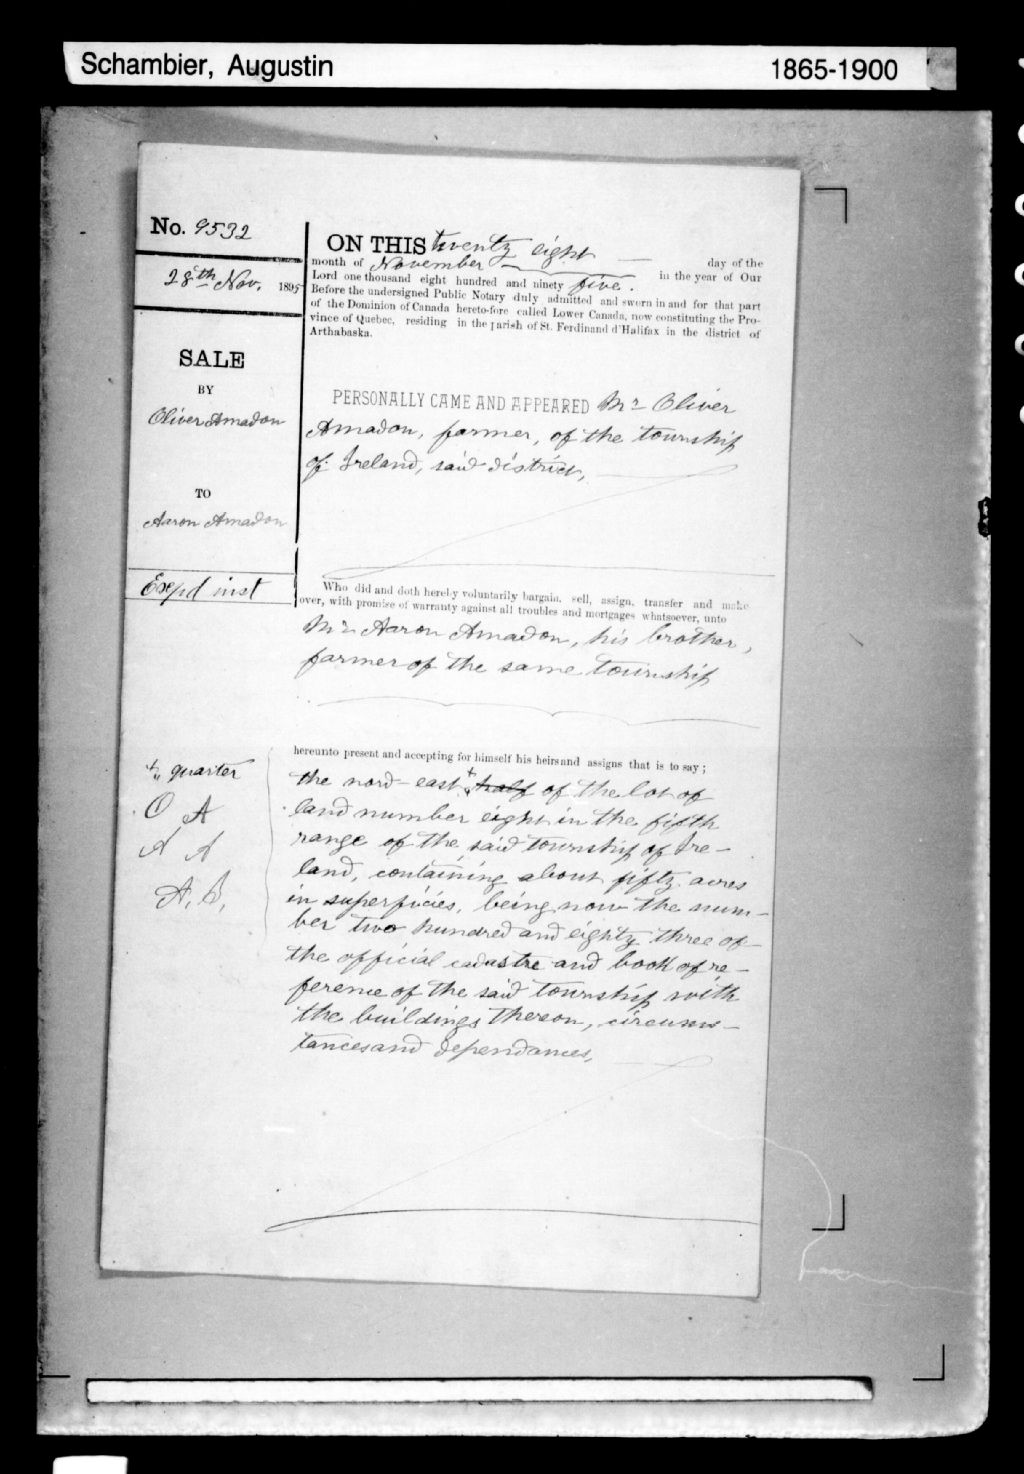 Schambier, Augustin 1865-1900
No. 9532
28th Nov. 1895
SALE
BY
Oliver Amadon
TO
Aaron Amadon
Exp'd inst
ON THIS twenty eight — day of the
month of November — in the year of Our
Lord one thousand eight hundred and ninety five.
Before the undersigned Public Notary duly admitted and sworn in and for that part
of the Dominion of Canada hereto-fore called Lower Canada, now constituting the Pro-
vince of Quebec, residing in the parish of St. Ferdinand d'Halifax in the district of
Arthabaska.
PERSONALLY CAME AND APPEARED Mr Oliver
Amadon, farmer, of the township
of Ireland, said district,
Who did and doth hereby voluntarily bargain, sell, assign, transfer and make
over, with promise of warranty against all troubles and mortgages whatsoever, unto
Mr Aaron Amadon, his brother,
farmer of the same township
hereunto present and accepting for himself his heirs and assigns that is to say;
the nord-east half of the lot of
land number eight in the fifth
range of the said township of Ire-
land, containing about fifty acres
in superficies, being now the num-
ber two hundred and eighty three of
the official cadastre and book of re-
ference of the said township with
the buildings thereon, circums-
tances and dependances,
quarter
O A
A A
A. S.